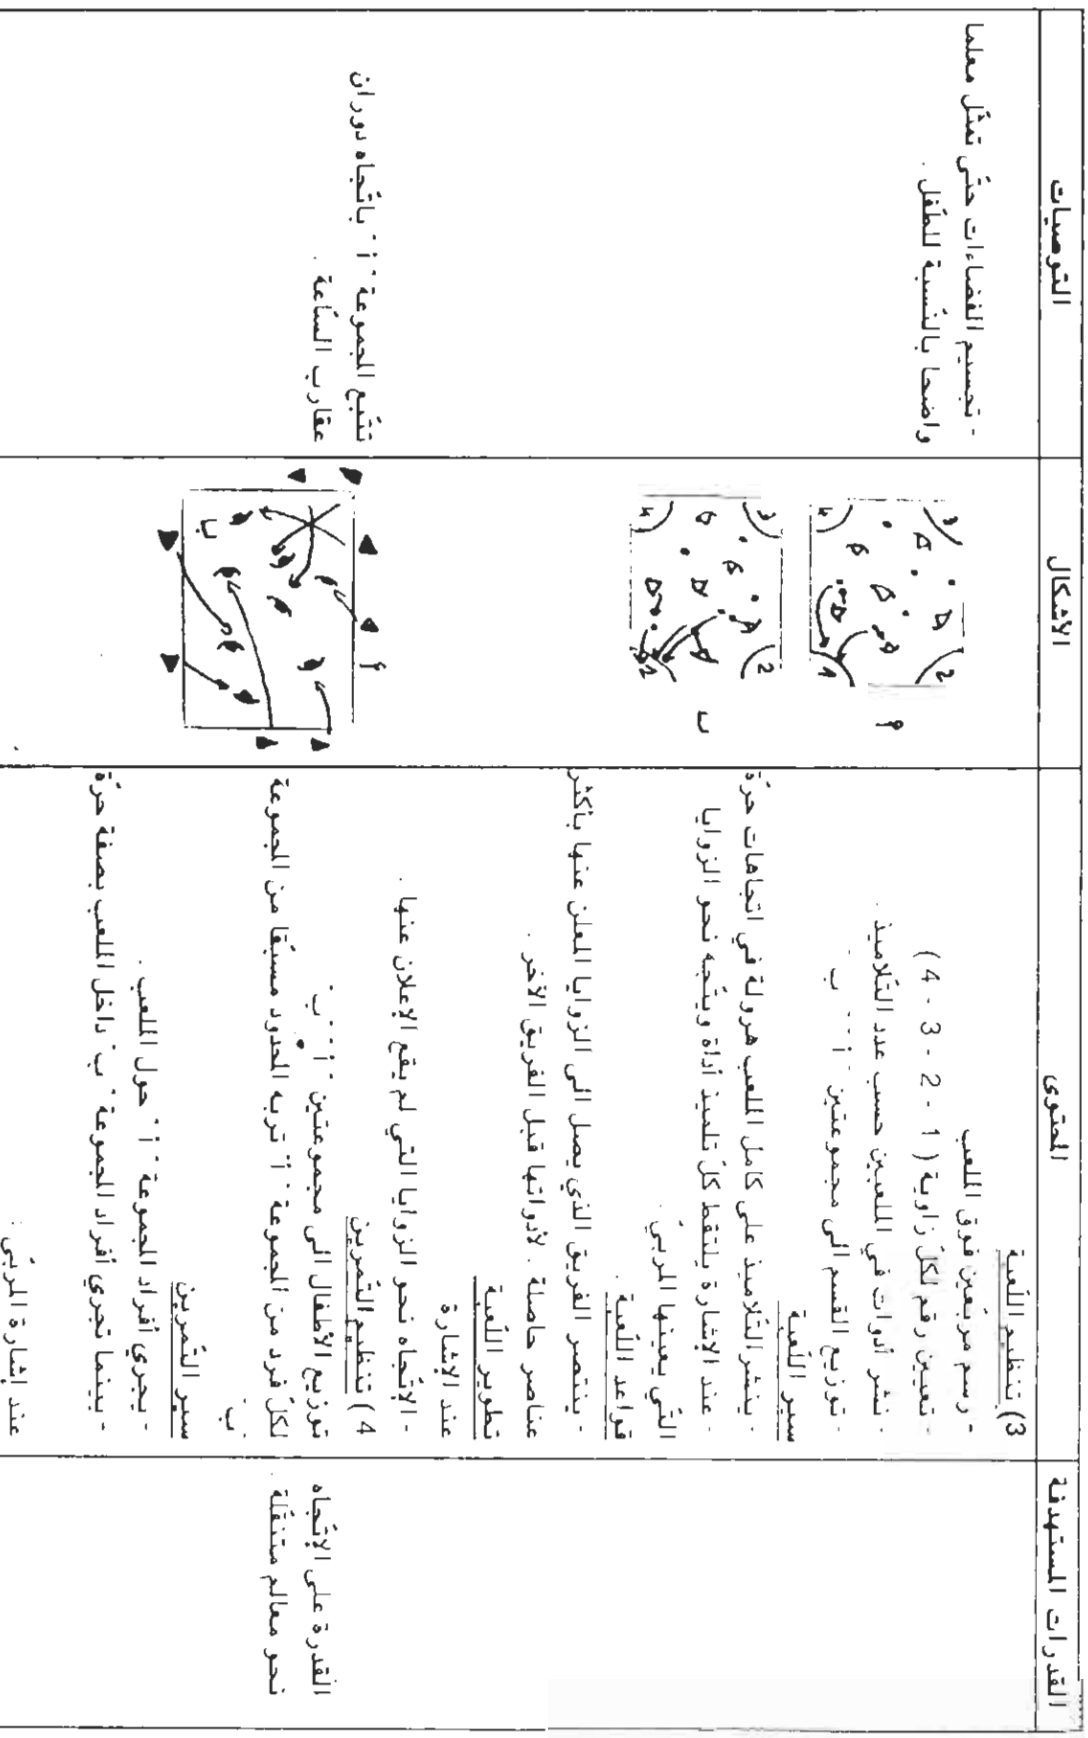 القدرات المستهدفة
المحتوى
الأشكال
التوصيات
3) تنظيم اللّعبة
- رسم مربّعين فوق الملعب
- تعيين رقم لكلّ زاوية (1 - 2 - 3 - 4)
- نشر أدوات في الملعبين حسب عدد التّلاميذ .
- توزيع القسم الى مجموعتين " أ " - " ب "
سير اللّعبة
- ينشر التّلاميذ على كامل الملعب هرولة في اتجاهات حرّة
- عند الإشارة يلتقط كلّ تلميذ أداة ويتّجه نحو الزوايا
التّي يعينها المربيّ .
قواعد اللّعبة .
- ينتصر الفريق الذي يصل الى الزوايا المعلن عنها بأكثر
عناصر حاصلة . لأدواتها قبل الفريق الآخر .
تطوير اللّعبة
عند الإشارة
- الإتّجاه نحو الزوايا التي لم يقع الإعلان عنها .
4) تنظيم التّمرين
توزيع الأطفال الى مجموعتين " أ " " ب "
لكلّ فرد من المجموعة " أ " تربه المحدّود مسبّقا من المجموعة
" ب "
سير التّمرين
- يجري أفراد المجموعة " أ " حول الملعب .
- بينما تجري أفراد المجموعة " ب " داخل الملعب بصفة حرّة
عند إشارة المربّي :
القدرة على الإتّجاه
نحو معالم متنقّلة .
أ
2
3
1
4
ب
2
3
1
4
أ
ب
- تجسيم الفضاءات حتّى تمثّل معلما
واضحا بالنّسبة للطّفل .
تتّبع المجموعة " أ " باتّجاه دوران
عقارب السّاعة .